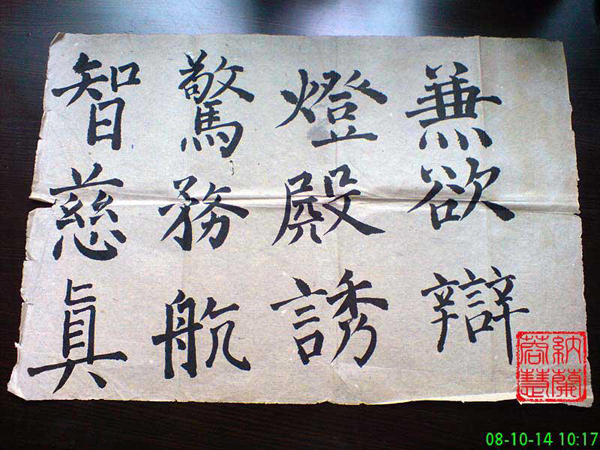 兼欲辯
燈殿誘
驚務航
智慈眞
納蘭
08-10-14 10:17